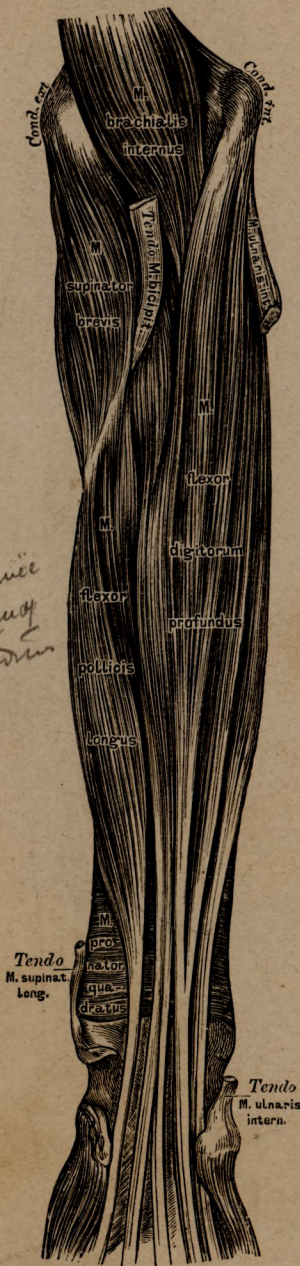 Cond. ext
Cond. int.
M.
brachialis
internus
Tendo M. bicipit.
M. ulnaris int.
M.
supinator
brevis
M.
flexor
digitorum
profundus
M.
flexor
pollicis
longus
M.
pro
nator
qua-
dratus
Tendo
M. supinat.
long.
Tendo
M. ulnaris
intern.